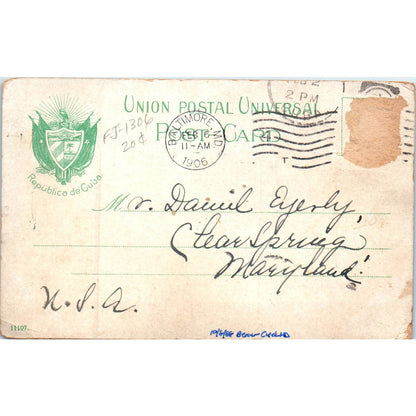 Union Postal Universal
Post Card
FJ-1306
20¢
BALTIMORE, MD.
FEB 6
11-AM
1906
2 PM
Republica de Cuba
Mr. Daniel Eyerly,
Clear Spring
Maryland.
U.S.A.
11407.